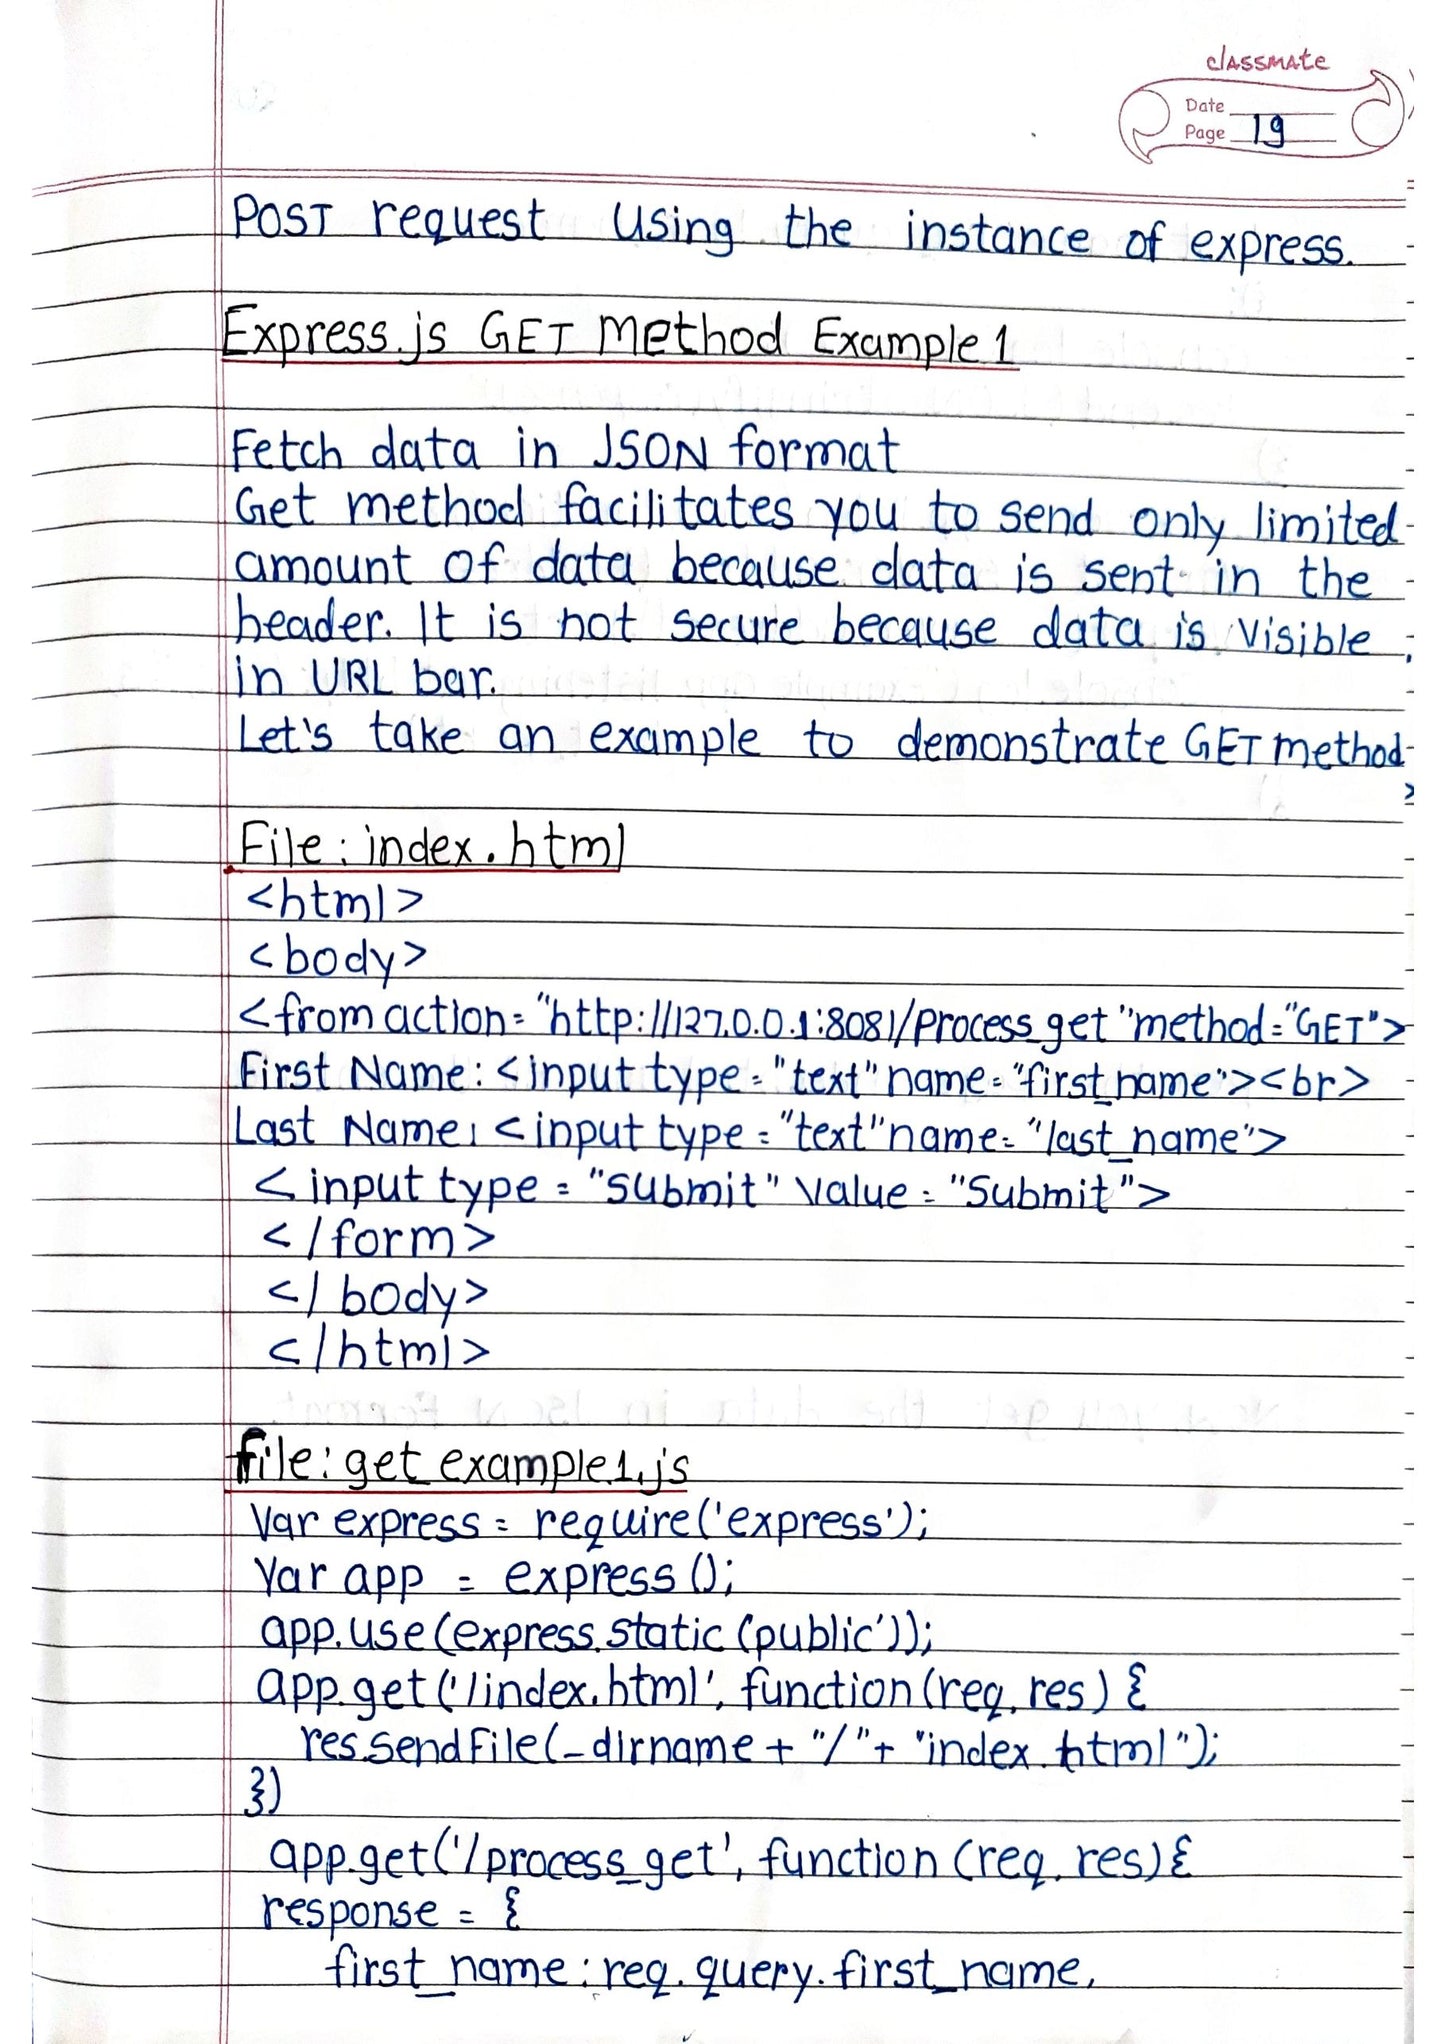 classmate
Date
Page 19
POST request using the instance of express.
Express.js GET Method Example 1
Fetch data in JSON format
Get method facilitates you to send only limited
amount of data because data is sent in the
header. It is not secure because data is visible
in URL bar.
Let's take an example to demonstrate GET method
File: index.html
<html>
<body>
<from action="http://127.0.0.1:8081/process_get" method="GET">
First Name: <input type="text" name="first_name"><br>
Last Name: <input type="text" name="last_name">
<input type="submit" value="Submit">
</form>
</body>
</html>
file: get_example1.js
Var express = require('express');
Var app = express();
app.use(express.static(public'));
app.get('/index.html', function(req, res) {
res.sendFile(_dirname + "/" + "index.html");
})
app.get('/process_get', function (req, res){
response = {
first_name: req.query.first_name,